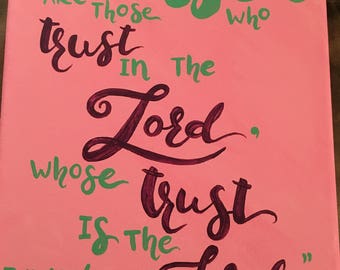 ARe Those WHO
trust
IN THe
Lord,
WHOSe trust
IS THe